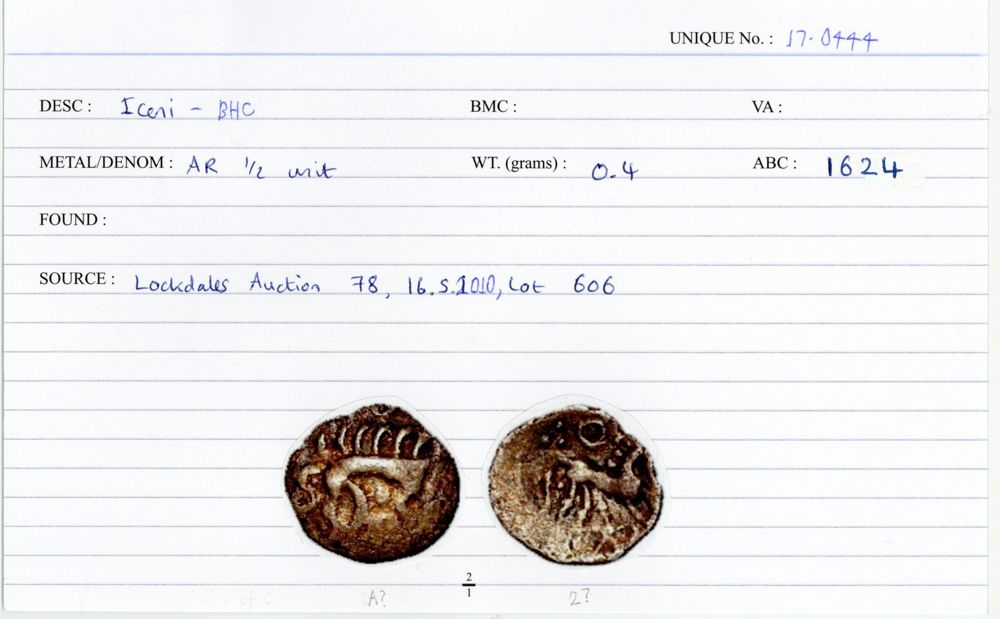 UNIQUE No. : 17.0444
DESC : Iceni - BHC BMC : VA :
METAL/DENOM : AR 1/2 unit WT. (grams) : 0.4 ABC : 1624
FOUND :
SOURCE : Lockdales Auction 78, 16.5.2010, Lot 606
2/1
A? 2?